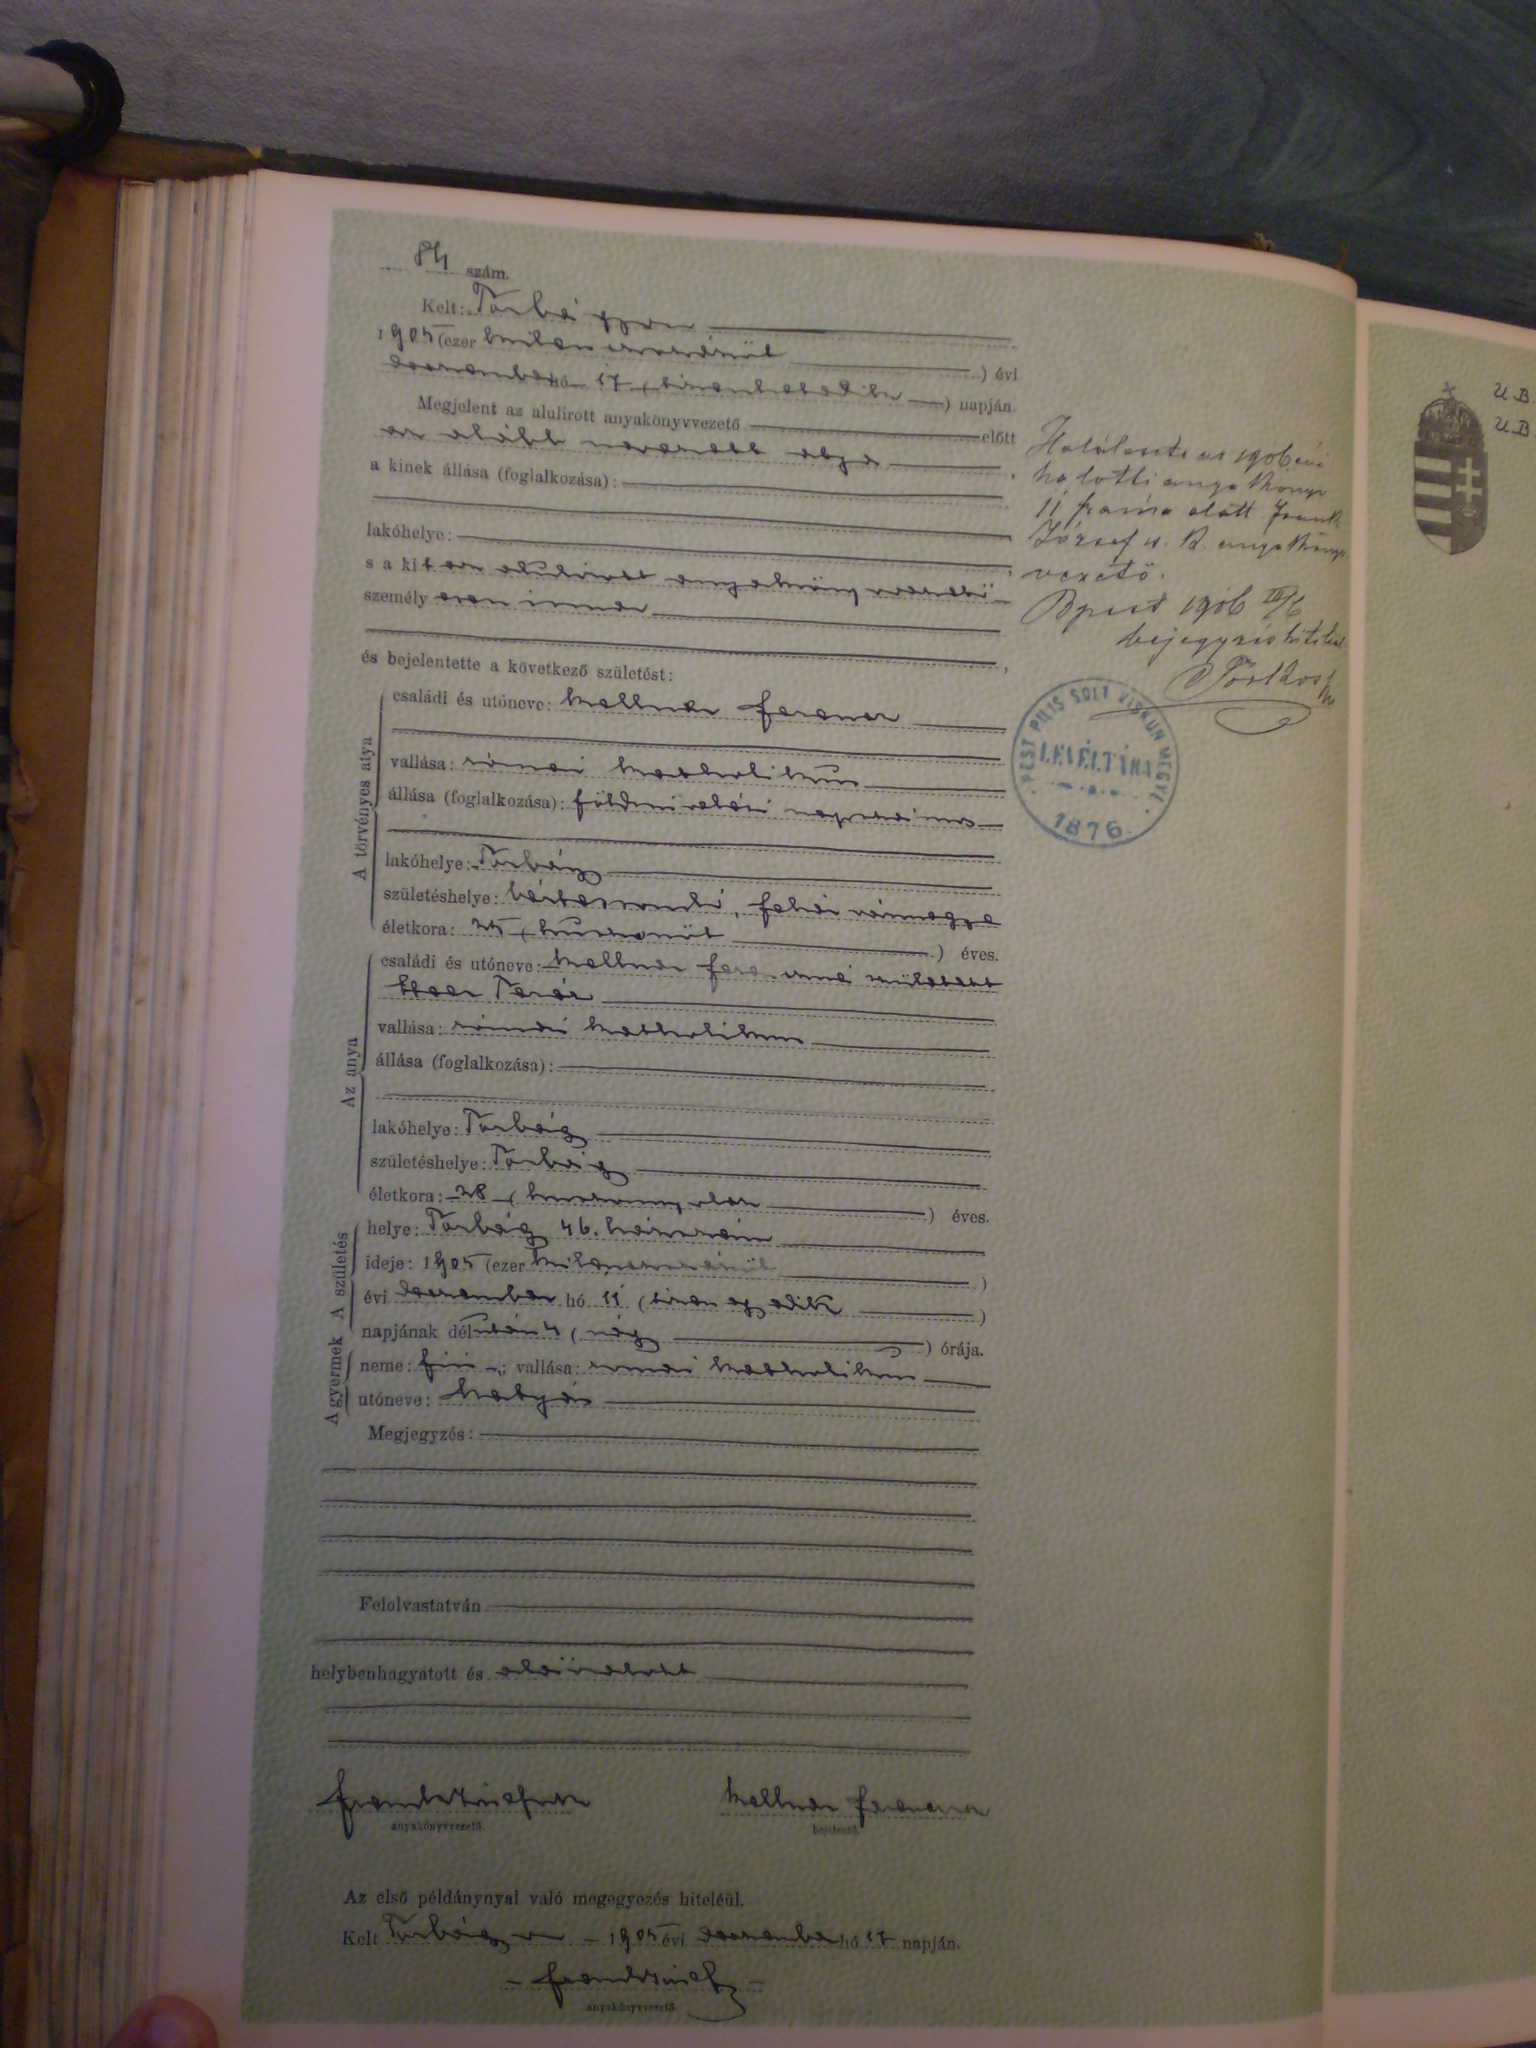 84 szám.
Kelt: Torbágyon
1905 (ezer kilenczszázöt ) évi
deczember hó 17 (tizenhetedike ) napján.
Megjelent az alulirott anyakönyvvezető előtt
az alább nevezett atya
a kinek állása (foglalkozása):
lakóhelye:
s a kit az alulirott anyakönyvvezető
személy esen ismer
és bejelentette a következő születést:
A törvényes atya
családi és utóneve: Kellner Ferencz
vallása: római katholikus
állása (foglalkozása): földmivelési napszámos
lakóhelye: Torbágy
születéshelye: , fehér vármegye
életkora: 25 (huszonöt ) éves.
Az anya
családi és utóneve: Kellner Ferenczné született
Teréz
vallása: római katholikus
állása (foglalkozása):
lakóhelye: Torbágy
születéshelye: Torbágy
életkora: 28 (husznnyolcz ) éves.
A születés
helye: Torbágy 46. házszám
ideje: 1905 (ezer kilenczszázöt )
évi deczember hó 11 (tizenegyedik )
napjának délután 4 (négy ) órája.
A gyermek
neme: fiú ; vallása: római katholikus
utóneve: Mátyás
Megjegyzés:
Felolvastatván
helybenhagyatott és aláiratott
Frank József
anyakönyvvezető.
Kellner Ferencz
bejelentő.
Az első példánynyal való megegyezés hiteléül.
Kelt Torbágyon 1905 évi deczember hó 17 napján.
Frank József
anyakönyvvezető
Halálozta az 1906 évi
halotti anyakönyv
11 száma alatt Frank
József s. k. anyakönyv
vezető.
Bpest 1906 IV/6
bejegyzés hiteléül
PEST PILIS SOLT KISKUN MEGYE
LEVÉLTÁRA
1876
U B
U B